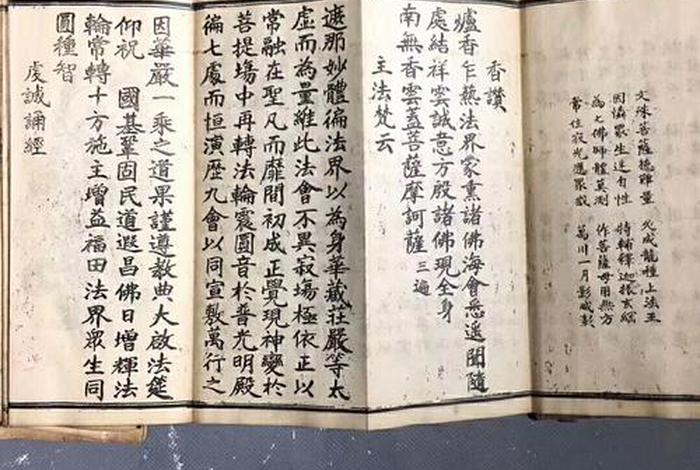 文殊菩薩德難量 久成龍種上法王
因憐眾生迷自性 特輔釋迦振玄綱
為七佛師體莫測 作菩薩母用無方
常住寂光應眾感 萬川一月影咸彰
香讚
爐香乍爇法界蒙熏諸佛海會悉遙聞隨
處結祥雲誠意方殷諸佛現全身
南無香雲蓋菩薩摩訶薩 三遍
主法梵云
遮那妙體徧法界以為身華藏莊嚴等太
虛而為量維此法會不異寂塲極依正以
常融在聖凡而靡間初成正覺現神變於
菩提塲中再轉法輪震圓音於普光明殿
徧七處而恒演歷九會以同宣敷萬行之
因華嚴一乘之道果謹遵教典大啟法筵
仰祝 國基鞏固民道遐昌佛日增輝法
輪常轉十方施主增益福田法界眾生同
圓種智
虔誠誦經